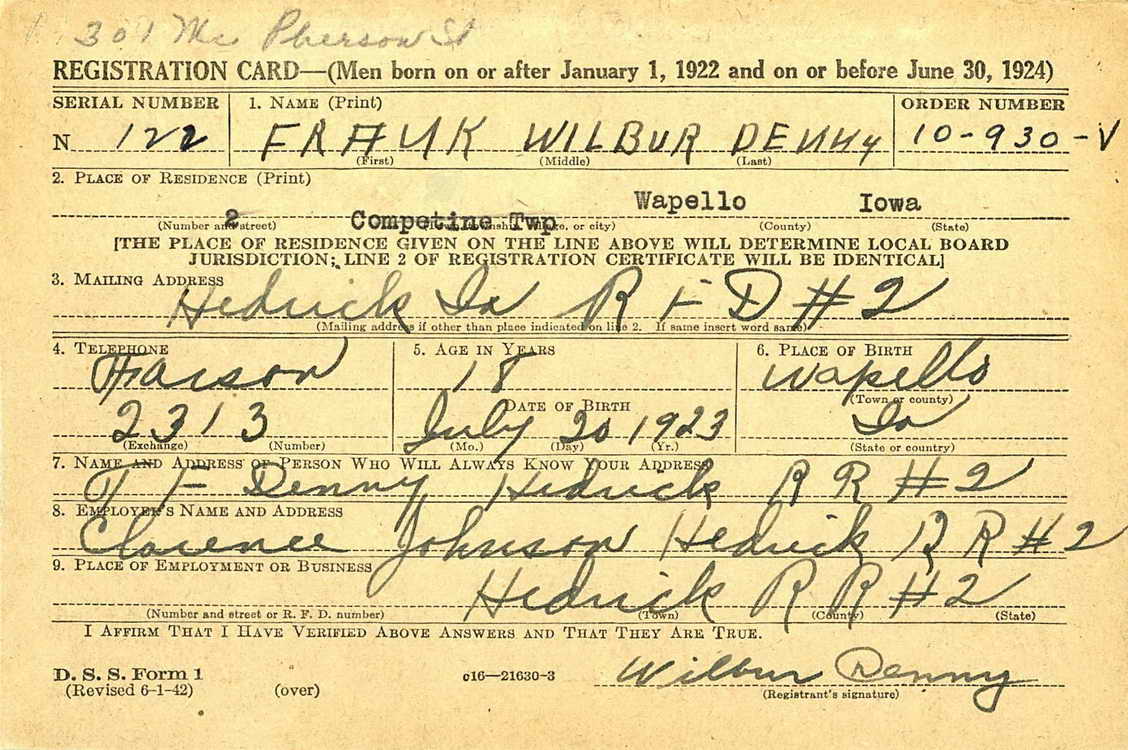 301 Mc Pherson St
REGISTRATION CARD—(Men born on or after January 1, 1922 and on or before June 30, 1924)
SERIAL NUMBER 1. NAME (Print) ORDER NUMBER
N 122 FRANK WILBUR DENNY 10-930-V
(First) (Middle) (Last)
2. PLACE OF RESIDENCE (Print)
2 Competine Twp Wapello Iowa
(Number and street) (County) (State)
[THE PLACE OF RESIDENCE GIVEN ON THE LINE ABOVE WILL DETERMINE LOCAL BOARD
JURISDICTION; LINE 2 OF REGISTRATION CERTIFICATE WILL BE IDENTICAL]
3. MAILING ADDRESS
Hedrick Ia R F D #2
(Mailing address if other than place indicated on line 2. If same insert word same)
4. TELEPHONE 5. AGE IN YEARS 6. PLACE OF BIRTH
Farson 18 Wapello
DATE OF BIRTH (Town or county)
2313 July 20 1923 Ia
(Exchange) (Number) (Mo.) (Day) (Yr.) (State or country)
7. NAME AND ADDRESS OF PERSON WHO WILL ALWAYS KNOW YOUR ADDRESS
T F Denny Hedrick R R #2
8. EMPLOYER'S NAME AND ADDRESS
Clarence Johnson Hedrick R R #2
9. PLACE OF EMPLOYMENT OR BUSINESS
Hedrick R R #2
(Number and street or R. F. D. number) (Town) (County) (State)
I AFFIRM THAT I HAVE VERIFIED ABOVE ANSWERS AND THAT THEY ARE TRUE.
D. S. S. Form 1 c16—21630-3 Wilbur Denny
(Revised 6-1-42) (over) (Registrant's signature)